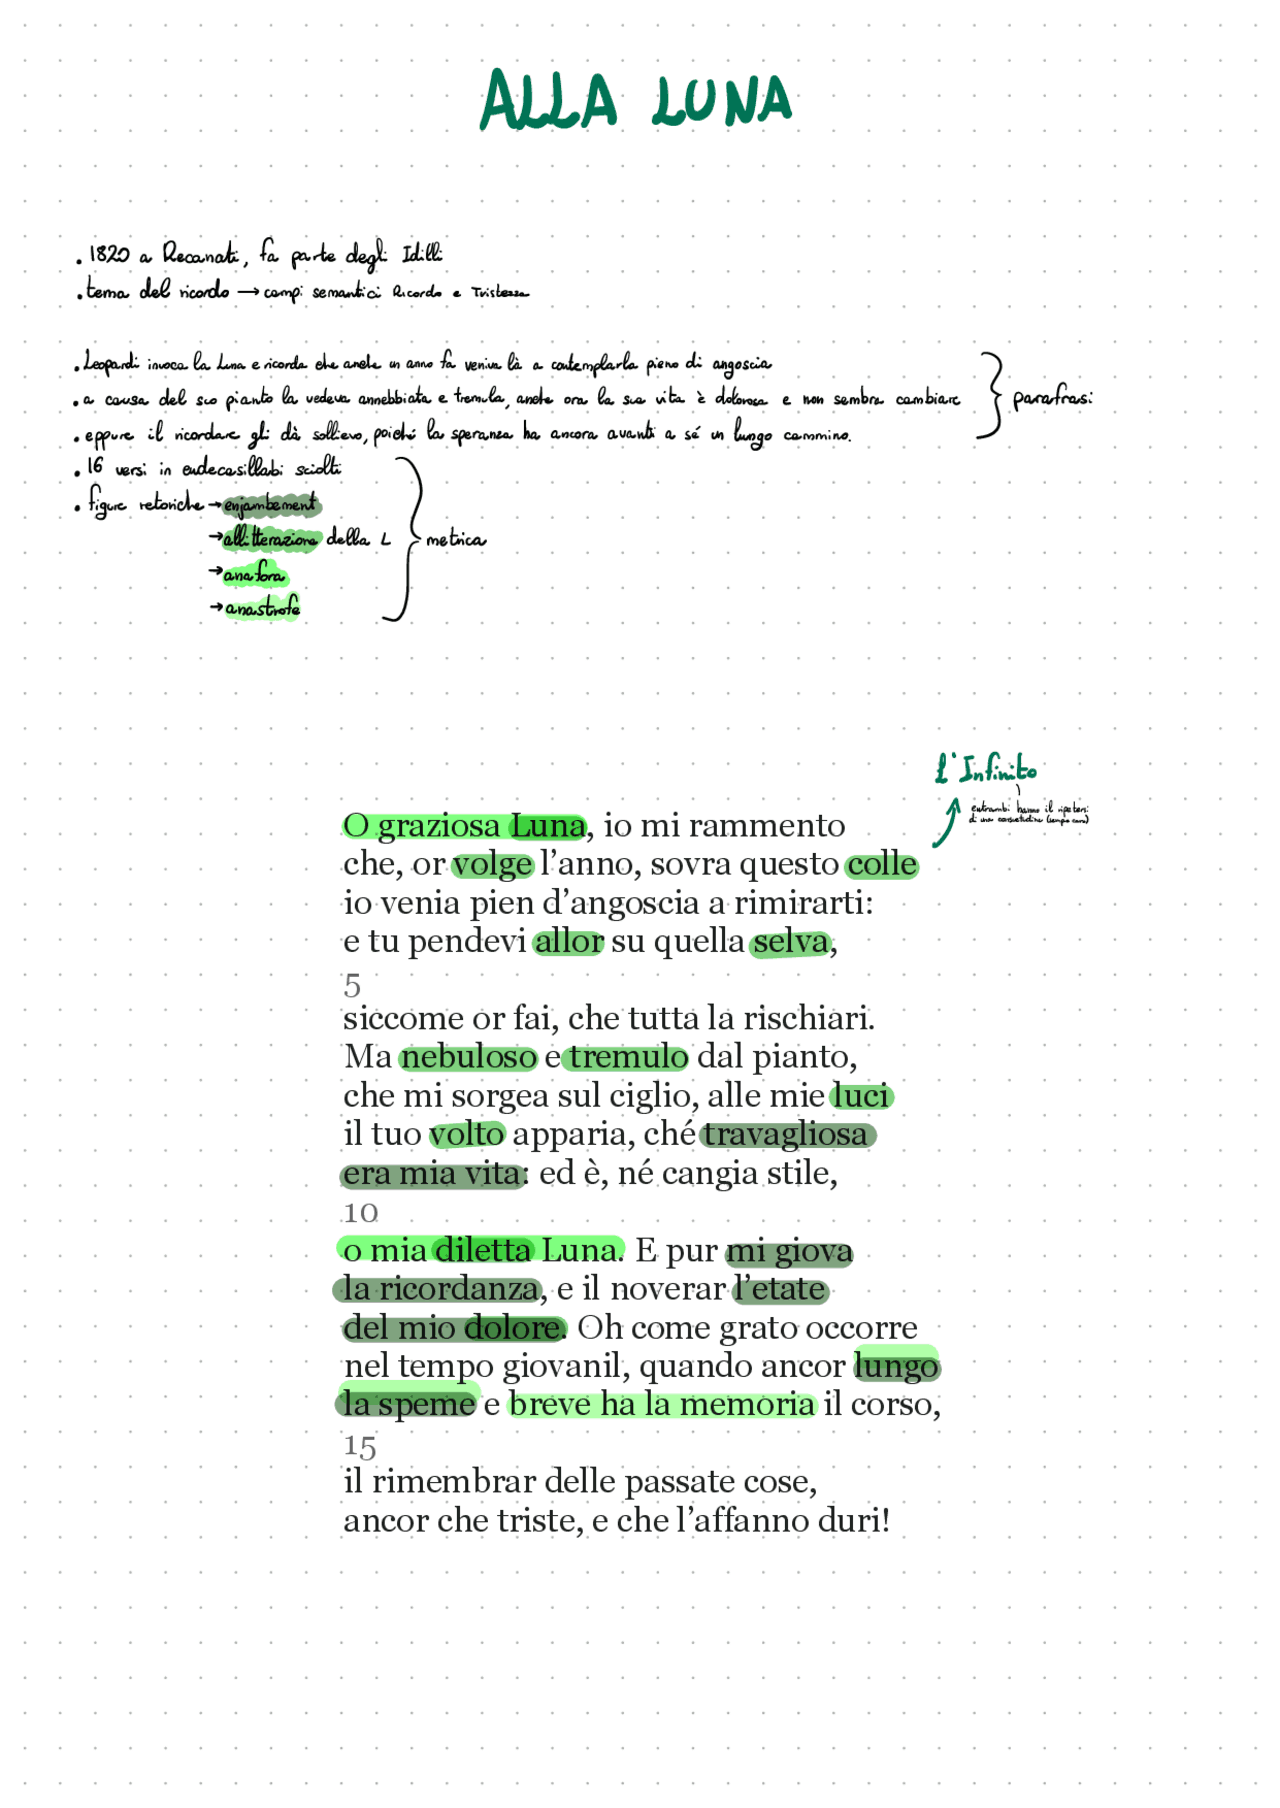 ALLA LUNA
. 1820 a Recanati, fa parte degli Idilli
. tema del ricordo → campi semantici Ricordo e Tristezza
. Leopardi invoca la Luna e ricorda che anche un anno fa veniva là a contemplarla pieno di angoscia
. a causa del suo pianto la vedeva annebbiata e tremula, anche ora la sua vita è dolorosa e non sembra cambiare
parafrasi
. eppure il ricordare gli dà sollievo, poiché la speranza ha ancora avanti a sé un lungo cammino.
. 16 versi in endecasillabi sciolti
. figure retoriche → enjambement
→ allitterazione della L
metrica
→ anafora
→ anastrofe
L'Infinito
entrambi hanno il ripetersi
di una consuetudine
O graziosa Luna, io mi rammento
che, or volge l'anno, sovra questo colle
io venia pien d'angoscia a rimirarti:
e tu pendevi allor su quella selva,
5
siccome or fai, che tutta la rischiari.
Ma nebuloso e tremulo dal pianto,
che mi sorgea sul ciglio, alle mie luci
il tuo volto apparia, ché travagliosa
era mia vita: ed è, né cangia stile,
10
o mia diletta Luna. E pur mi giova
la ricordanza, e il noverar l'etate
del mio dolore. Oh come grato occorre
nel tempo giovanil, quando ancor lungo
la speme e breve ha la memoria il corso,
15
il rimembrar delle passate cose,
ancor che triste, e che l'affanno duri!